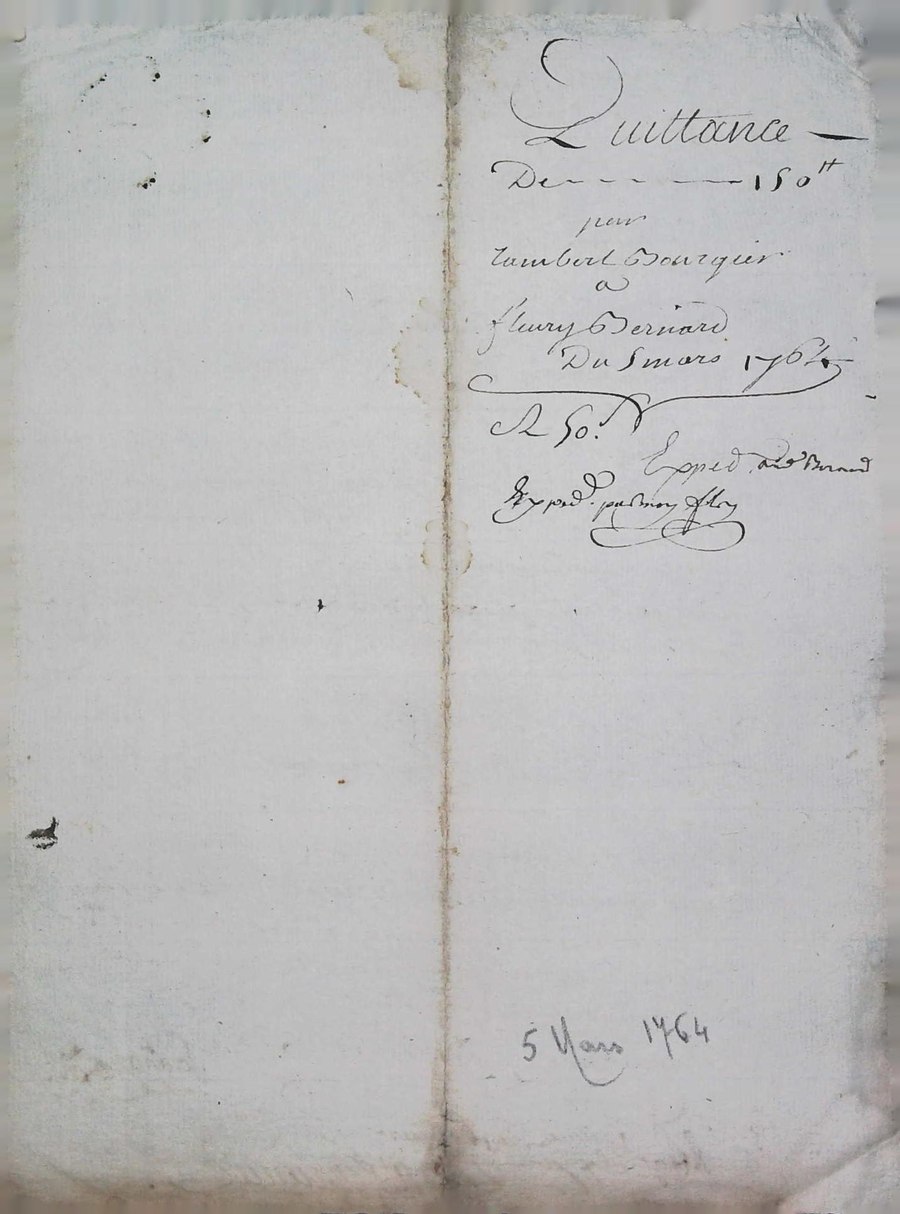 Quittance
De - - - - - - 150 tt
par
Lambert Bourgier
a
fleury Bernard
Du 5 mars 1764
R 50.s
Exped
Exped. par moy
5 Mars 1764